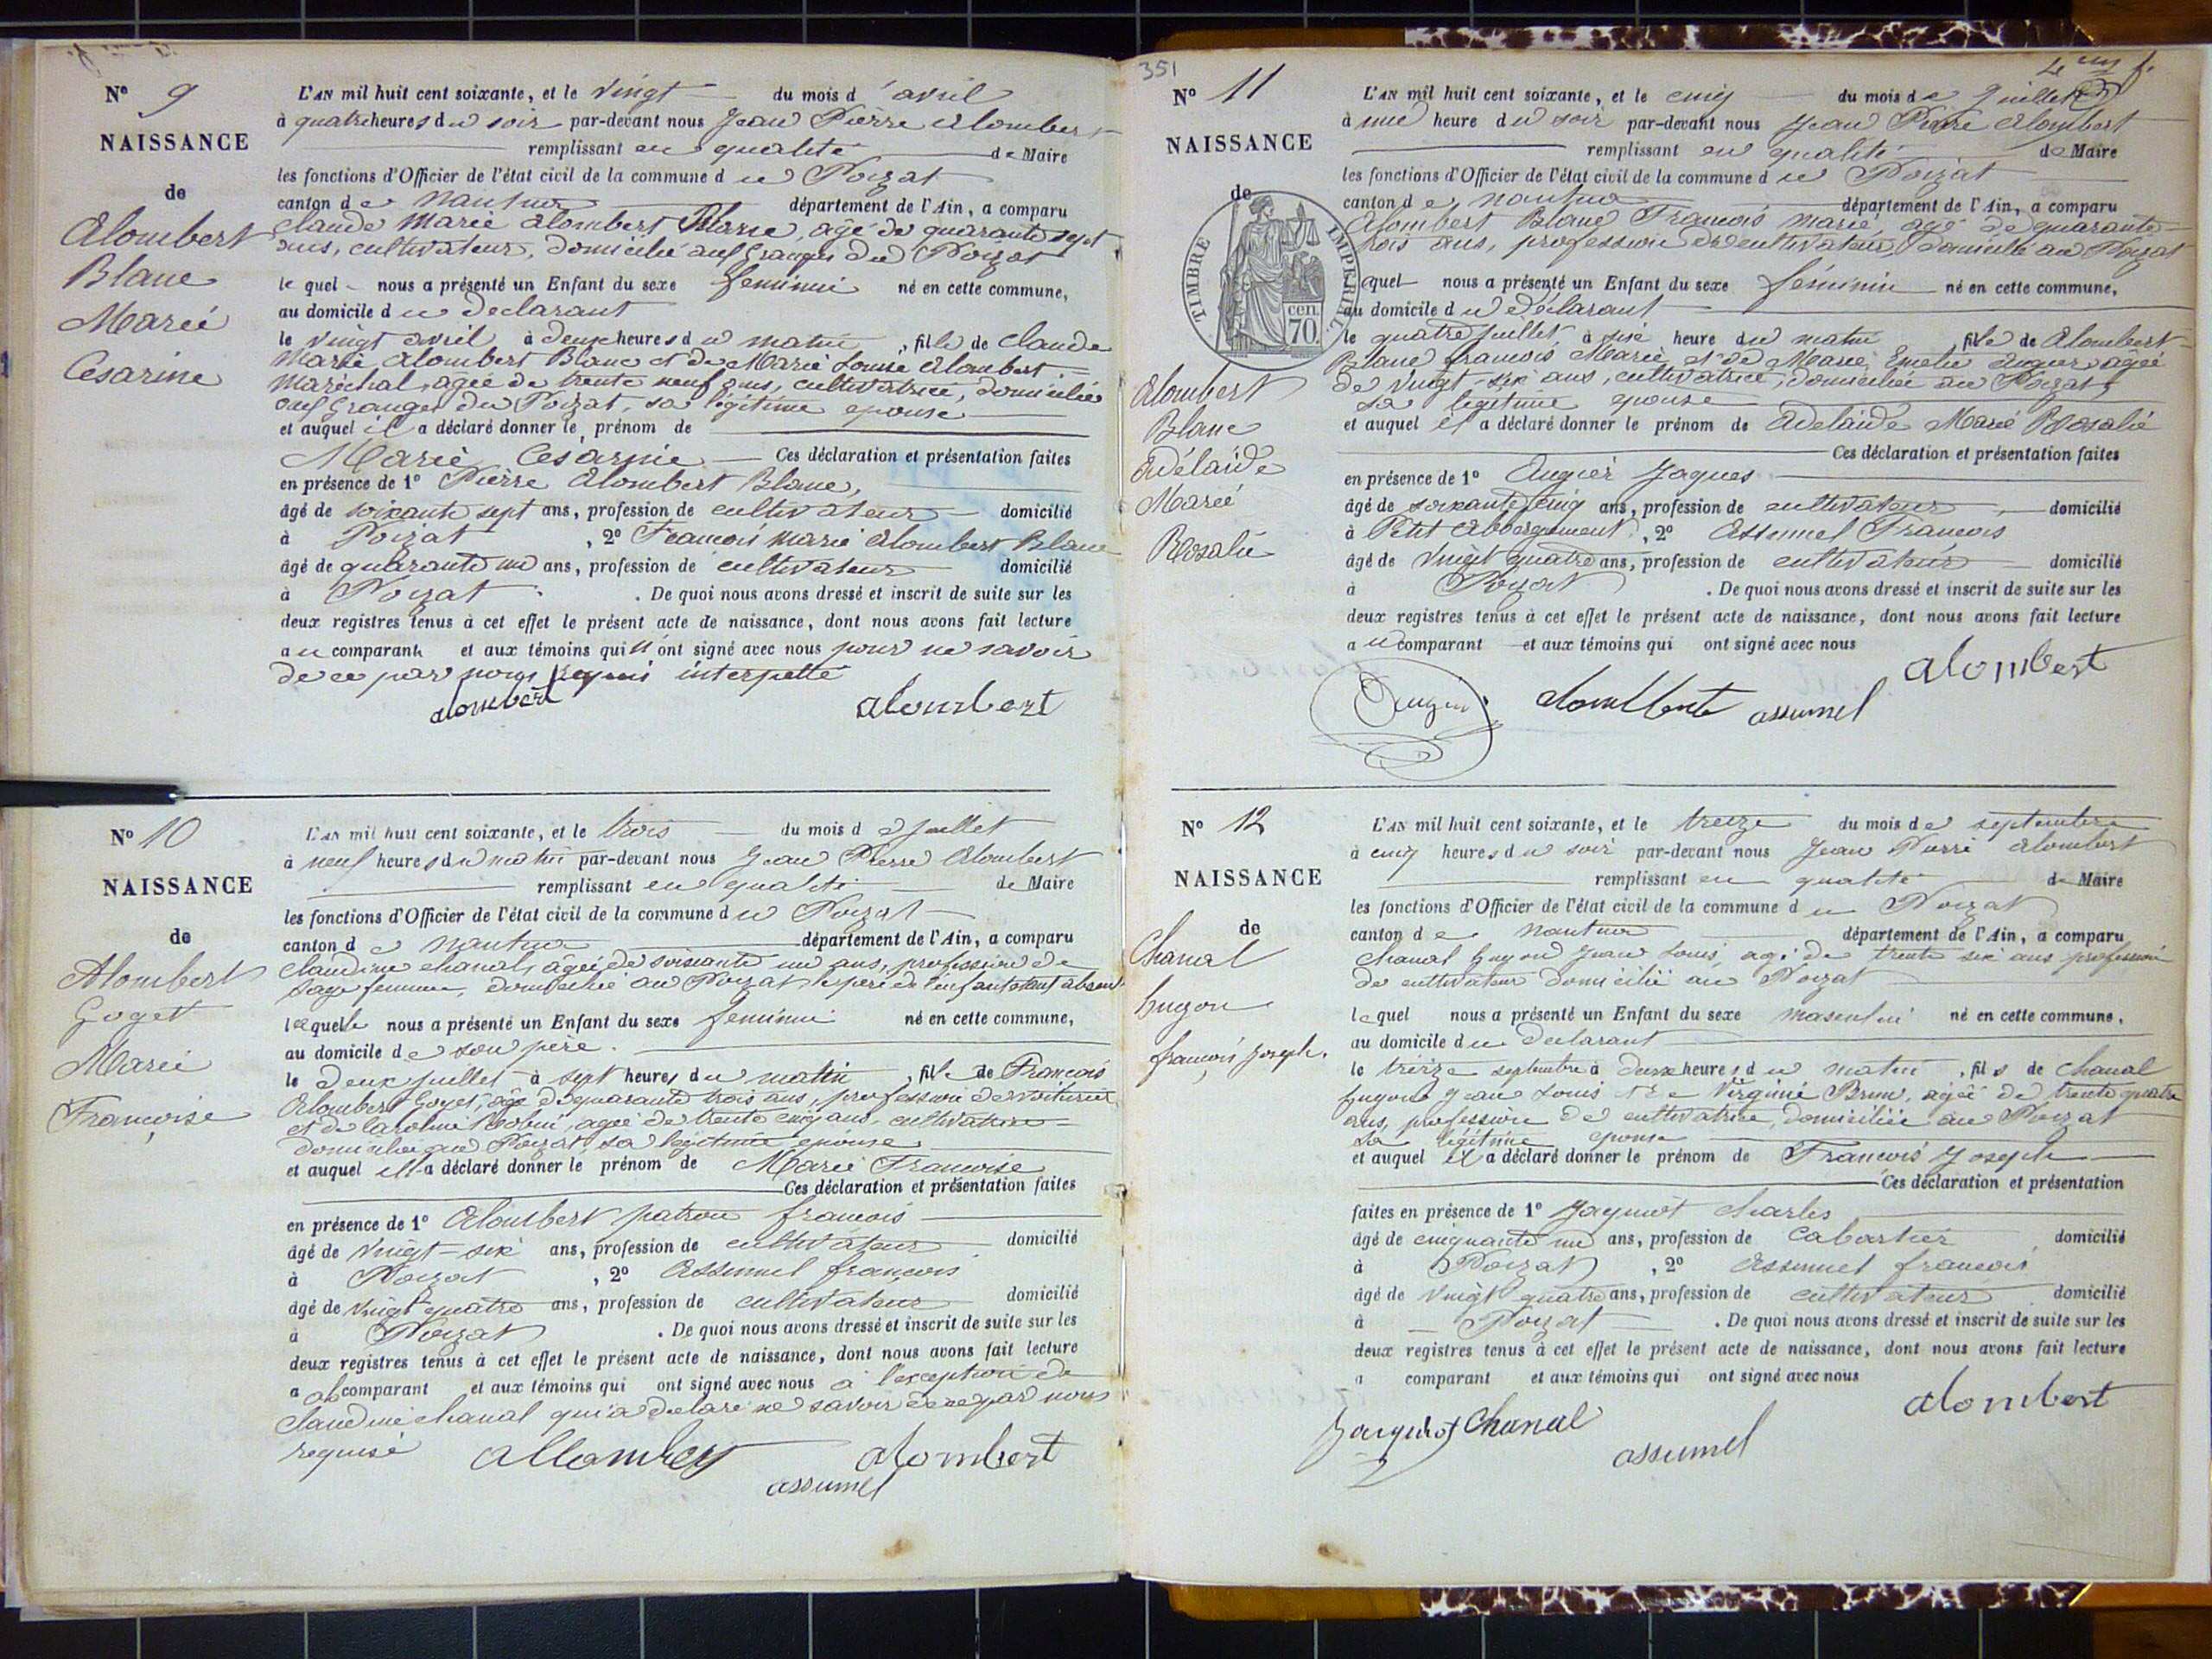 N° 9
NAISSANCE
de
Alombert
Blanc
Marie
Césarine
L'AN mil huit cent soixante, et le vingt du mois d'avril
à quatre heures du soir par-devant nous Jean Pierre Alombert
remplissant en qualité de Maire
les fonctions d'Officier de l'état civil de la commune du Poizat
canton de Nantua département de l'Ain, a comparu
Claude Marie Alombert Blanc, âgé de quarante sept
ans, cultivateur, domicilié aux Granges du Poizat
le quel nous a présenté un Enfant du sexe féminin né en cette commune,
au domicile du déclarant
le vingt avril à deux heures du matin, fille de Claude
Marie Alombert Blanc et de Marie Louise Alombert
Maréchal, agée de trente neuf ans, cultivatrice, domiciliée
aux Granges du Poizat, sa légitime epouse
et auquel il a déclaré donner le prénom de
Marie Césarine Ces déclaration et présentation faites
en présence de 1° Pierre Alombert Blanc,
âgé de soixante sept ans, profession de cultivateur domicilié
à Poizat, 2° François Marie Alombert Blanc
âgé de quarante un ans, profession de cultivateur domicilié
à Poizat. De quoi nous avons dressé et inscrit de suite sur les
deux registres tenus à cet effet le présent acte de naissance, dont nous avons fait lecture
au comparant et aux témoins qui n'ont signé avec nous pour ne savoir
de ce par nous requis interpellé
alombert alombert
N° 10
NAISSANCE
de
Alombert
Goyet
Marie
Françoise
L'AN mil huit cent soixante, et le trois du mois de Juillet
à neuf heures du matin par-devant nous Jean Pierre Alombert
remplissant en qualité de Maire
les fonctions d'Officier de l'état civil de la commune du Poizat
canton de Nantua département de l'Ain, a comparu
Claudine Chanal, âgée de soixante un ans, profession de
sage femme, domiciliée au Poizat le père de l'enfant étant absent
laquelle nous a présenté un Enfant du sexe féminin né en cette commune,
au domicile de son père.
le deux juillet à sept heures du matin, fille de François
Alombert Goyet, âgé de quarante trois ans, profession de voiturier
et de Caroline Robin, agée de trente cinq ans, cultivatrice
domiciliée au Poizat, sa légitime épouse
et auquel elle a déclaré donner le prénom de Marie Françoise
Ces déclaration et présentation faites
en présence de 1° Alombert patron françois
âgé de vingt-six ans, profession de cultivateur domicilié
à Poizat, 2° Assumel françois
âgé de vingt quatre ans, profession de cultivateur domicilié
à Poizat. De quoi nous avons dressé et inscrit de suite sur les
deux registres tenus à cet effet le présent acte de naissance, dont nous avons fait lecture
a la comparant et aux témoins qui ont signé avec nous à l'exception de
Claudine Chanal qui a déclaré ne savoir de ce par nous
requise allombert alombert
assumel
351
N° 11
NAISSANCE
de
TIMBRE IMPERIAL
70 cen.
Alombert
Blanc
Adélaïde
Marie
Rosalie
4me f.
L'AN mil huit cent soixante, et le cinq du mois de Juillet
à une heure du soir par-devant nous Jean Pierre Alombert
remplissant en qualité de Maire
les fonctions d'Officier de l'état civil de la commune du Poizat
canton de Nantua département de l'Ain, a comparu
Alombert Blanc François Marie, agé de quarante
trois ans, profession de cultivateur, domicilié au Poizat
lequel nous a présenté un Enfant du sexe féminin né en cette commune,
au domicile du déclarant
le quatre juillet, à six heure du matin, fille de Alombert
Blanc françois Marie et de Marie Emélie Augier agée
de vingt-six ans, cultivatrice, domiciliée au Poizat,
sa légitime épouse
et auquel il a déclaré donner le prénom de Adelaïde Marie Rosalie
Ces déclaration et présentation faites
en présence de 1° Augier Jaques
âgé de soixante cinq ans, profession de cultivateur domicilié
à Petit Abbergement, 2° Assumel François
âgé de vingt quatre ans, profession de cultivateur domicilié
à Poizat. De quoi nous avons dressé et inscrit de suite sur les
deux registres tenus à cet effet le présent acte de naissance, dont nous avons fait lecture
au comparant et aux témoins qui ont signé avec nous
alombert
Augier assumel
N° 12
NAISSANCE
de
Chanal
Gugon
françois Joseph.
L'AN mil huit cent soixante, et le treize du mois de septembre
à cinq heures du soir par-devant nous Jean Pierre Alombert
remplissant en qualité de Maire
les fonctions d'Officier de l'état civil de la commune du Poizat
canton de Nantua département de l'Ain, a comparu
Chanal Gugon Jean Louis, agé de trente six ans profession
de cultivateur domicilié au Poizat
lequel nous a présenté un Enfant du sexe masculin né en cette commune,
au domicile du déclarant
le treize septembre à deux heures du matin, fils de Chanal
Gugon Jean Louis et de Virginie Brun, agée de trente quatre
ans, profession de cultivatrice, domiciliée au Poizat
sa légitime épouse
et auquel il a déclaré donner le prénom de François Joseph
Ces déclaration et présentation
faites en présence de 1° Jaquiot Charles
âgé de cinquante un ans, profession de Cabartier domicilié
à Poizat, 2° Assumel françois
âgé de vingt quatre ans, profession de cultivateur domicilié
à Poizat. De quoi nous avons dressé et inscrit de suite sur les
deux registres tenus à cet effet le présent acte de naissance, dont nous avons fait lecture
a comparant et aux témoins qui ont signé avec nous
Jarquiot Chanal alombert
assumel